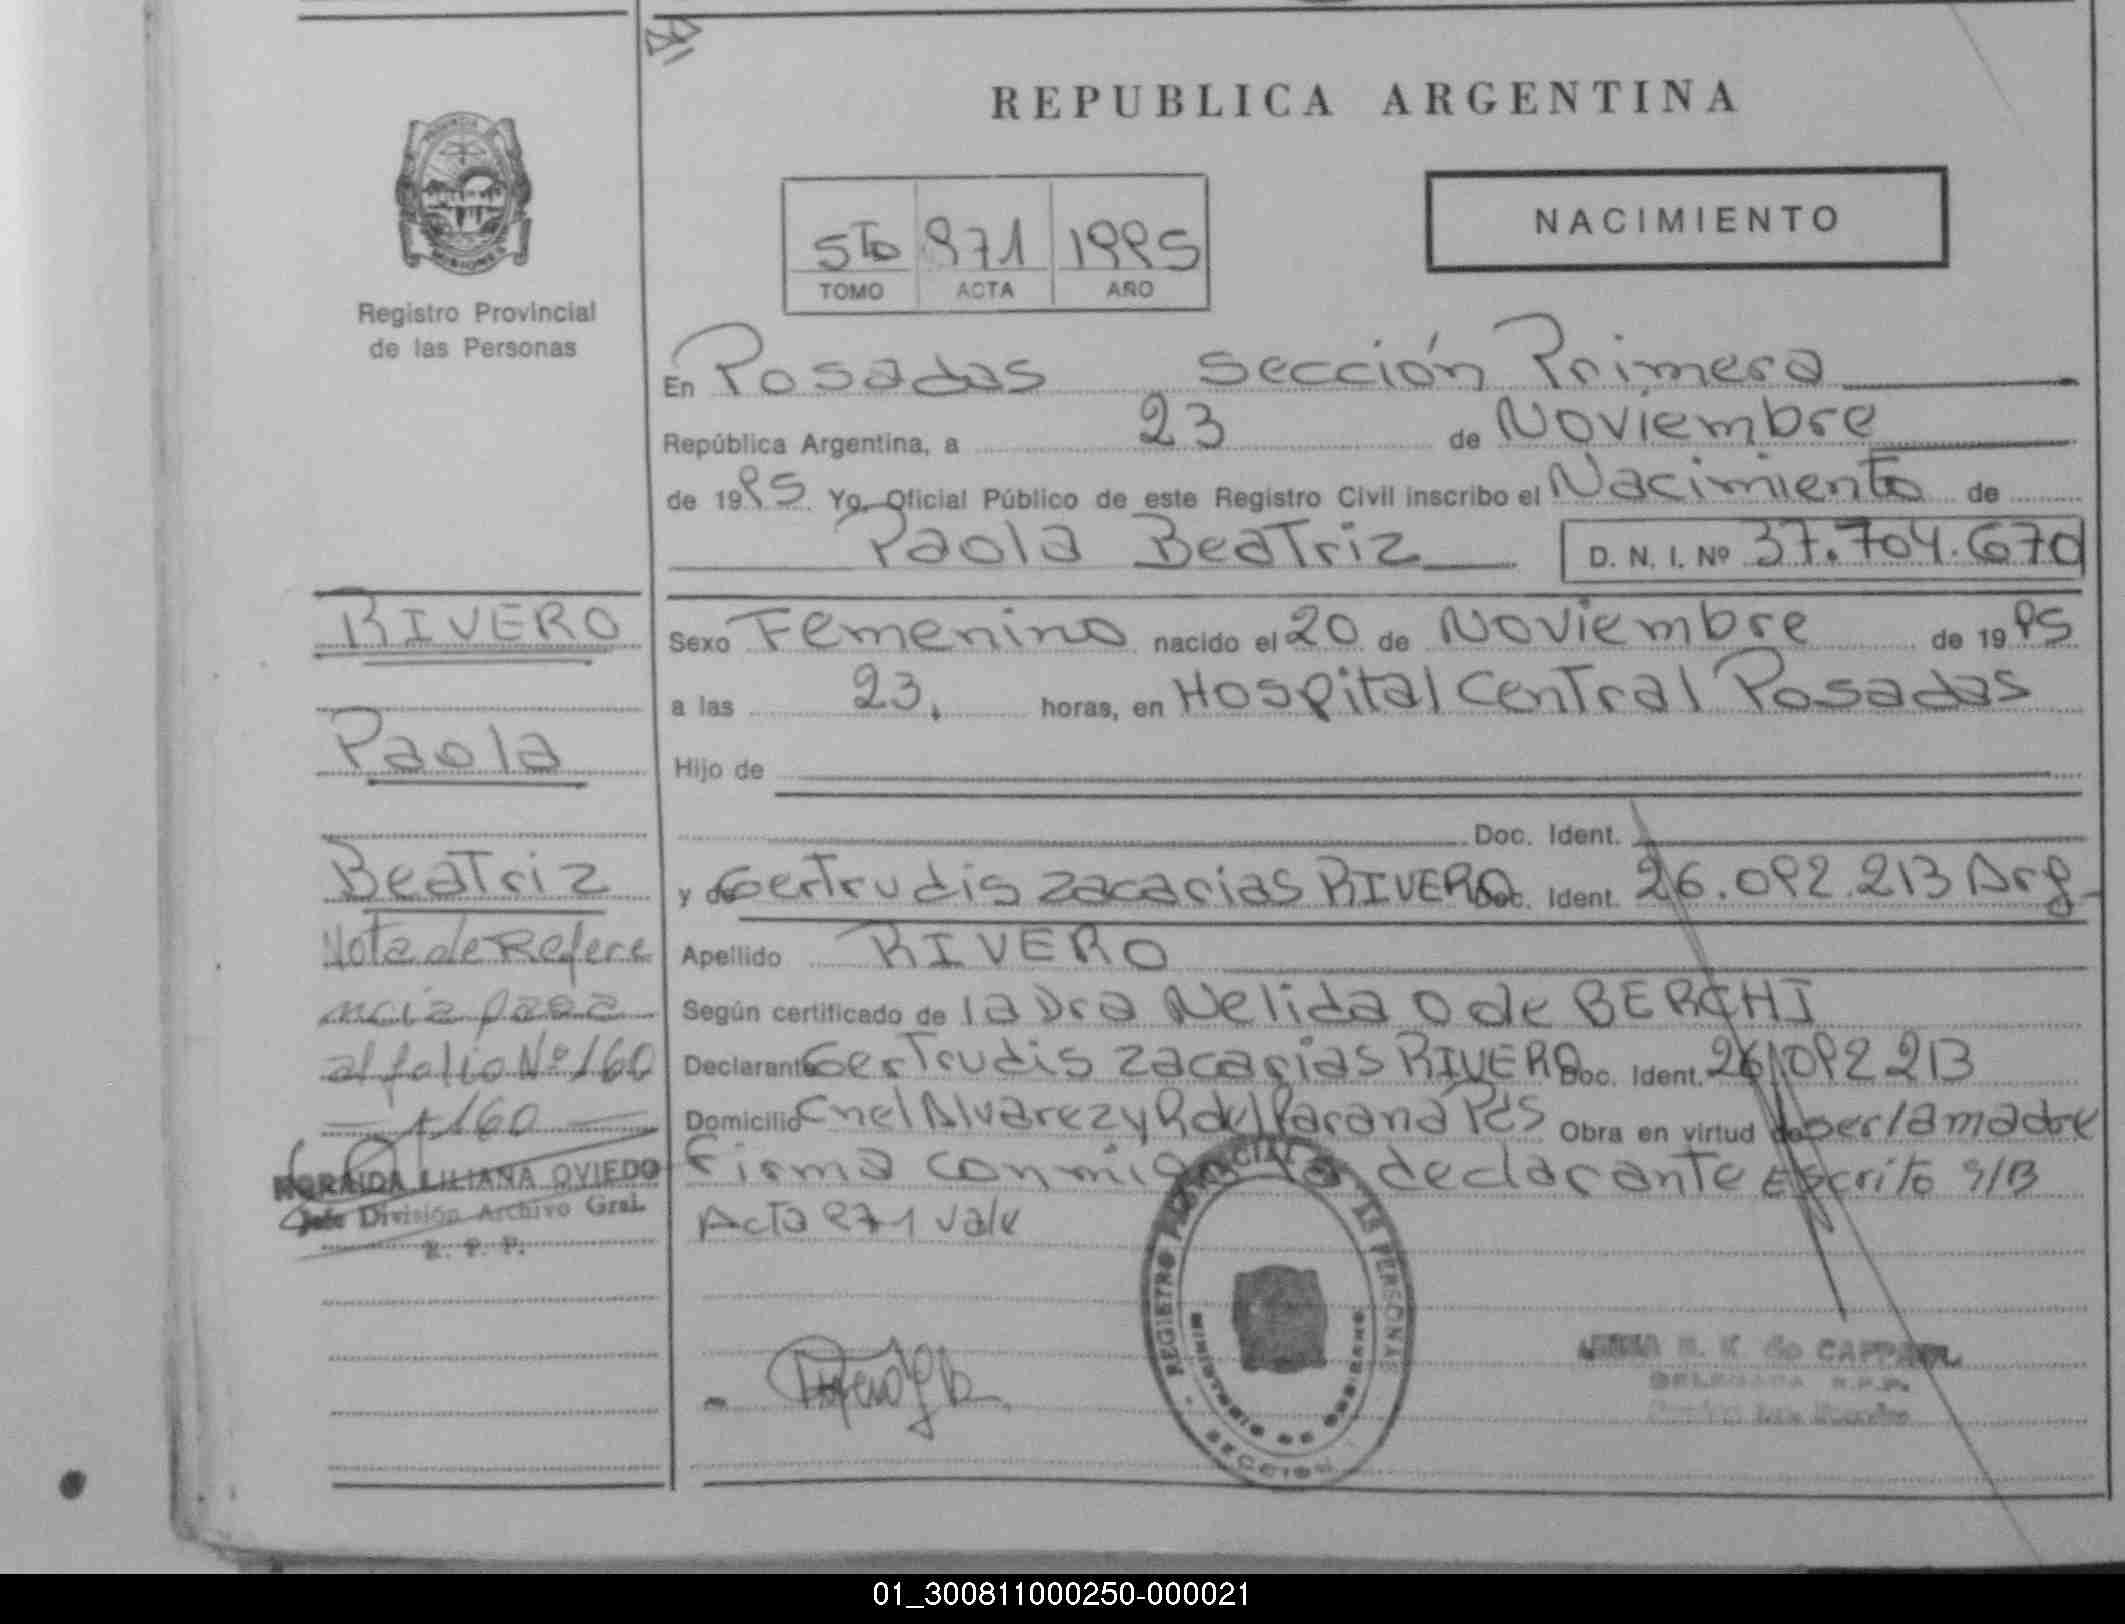 REPUBLICA ARGENTINA
PROVINCIA DE
MISIONES
Registro Provincial
de las Personas
NACIMIENTO
5to 971 1995
TOMO ACTA AÑO
En Posadas Sección Primera
República Argentina, a 23 de Noviembre
de 1995 Yo, Oficial Público de este Registro Civil inscribo el Nacimiento de
Paola Beatriz D. N. I. Nº 37.704.670
RIVERO
Paola
Beatriz
Nota de Refere
ncia pasa
al folio Nº 160
160
NORAIDA LILIANA OVIEDO
Jefe División Archivo Gral.
R. P. P.
Sexo Femenino nacido el 20 de Noviembre de 1995
a las 23. horas, en Hospital Central Posadas
Hijo de
Doc. Ident.
y de Gertrudis Zacarias RIVERO Doc. Ident. 26.092.213 Arg.
Apellido RIVERO
Según certificado de la Dra Nelida O de BERCHI
Declarante Gertrudis Zacarias RIVERO Doc. Ident. 26.092 213
Domicilio Cnel Alvarez y R del Paraná Pds Obra en virtud de ser la madre
Firma conmigo la declarante Escrito S/B
Acta 971 vale
REGISTRO PROVINCIAL DE LAS PERSONAS
MINISTERIO DE GOBIERNO
SECCION
de CAPPA
DELEGADA R.P.P.
01_300811000250-000021